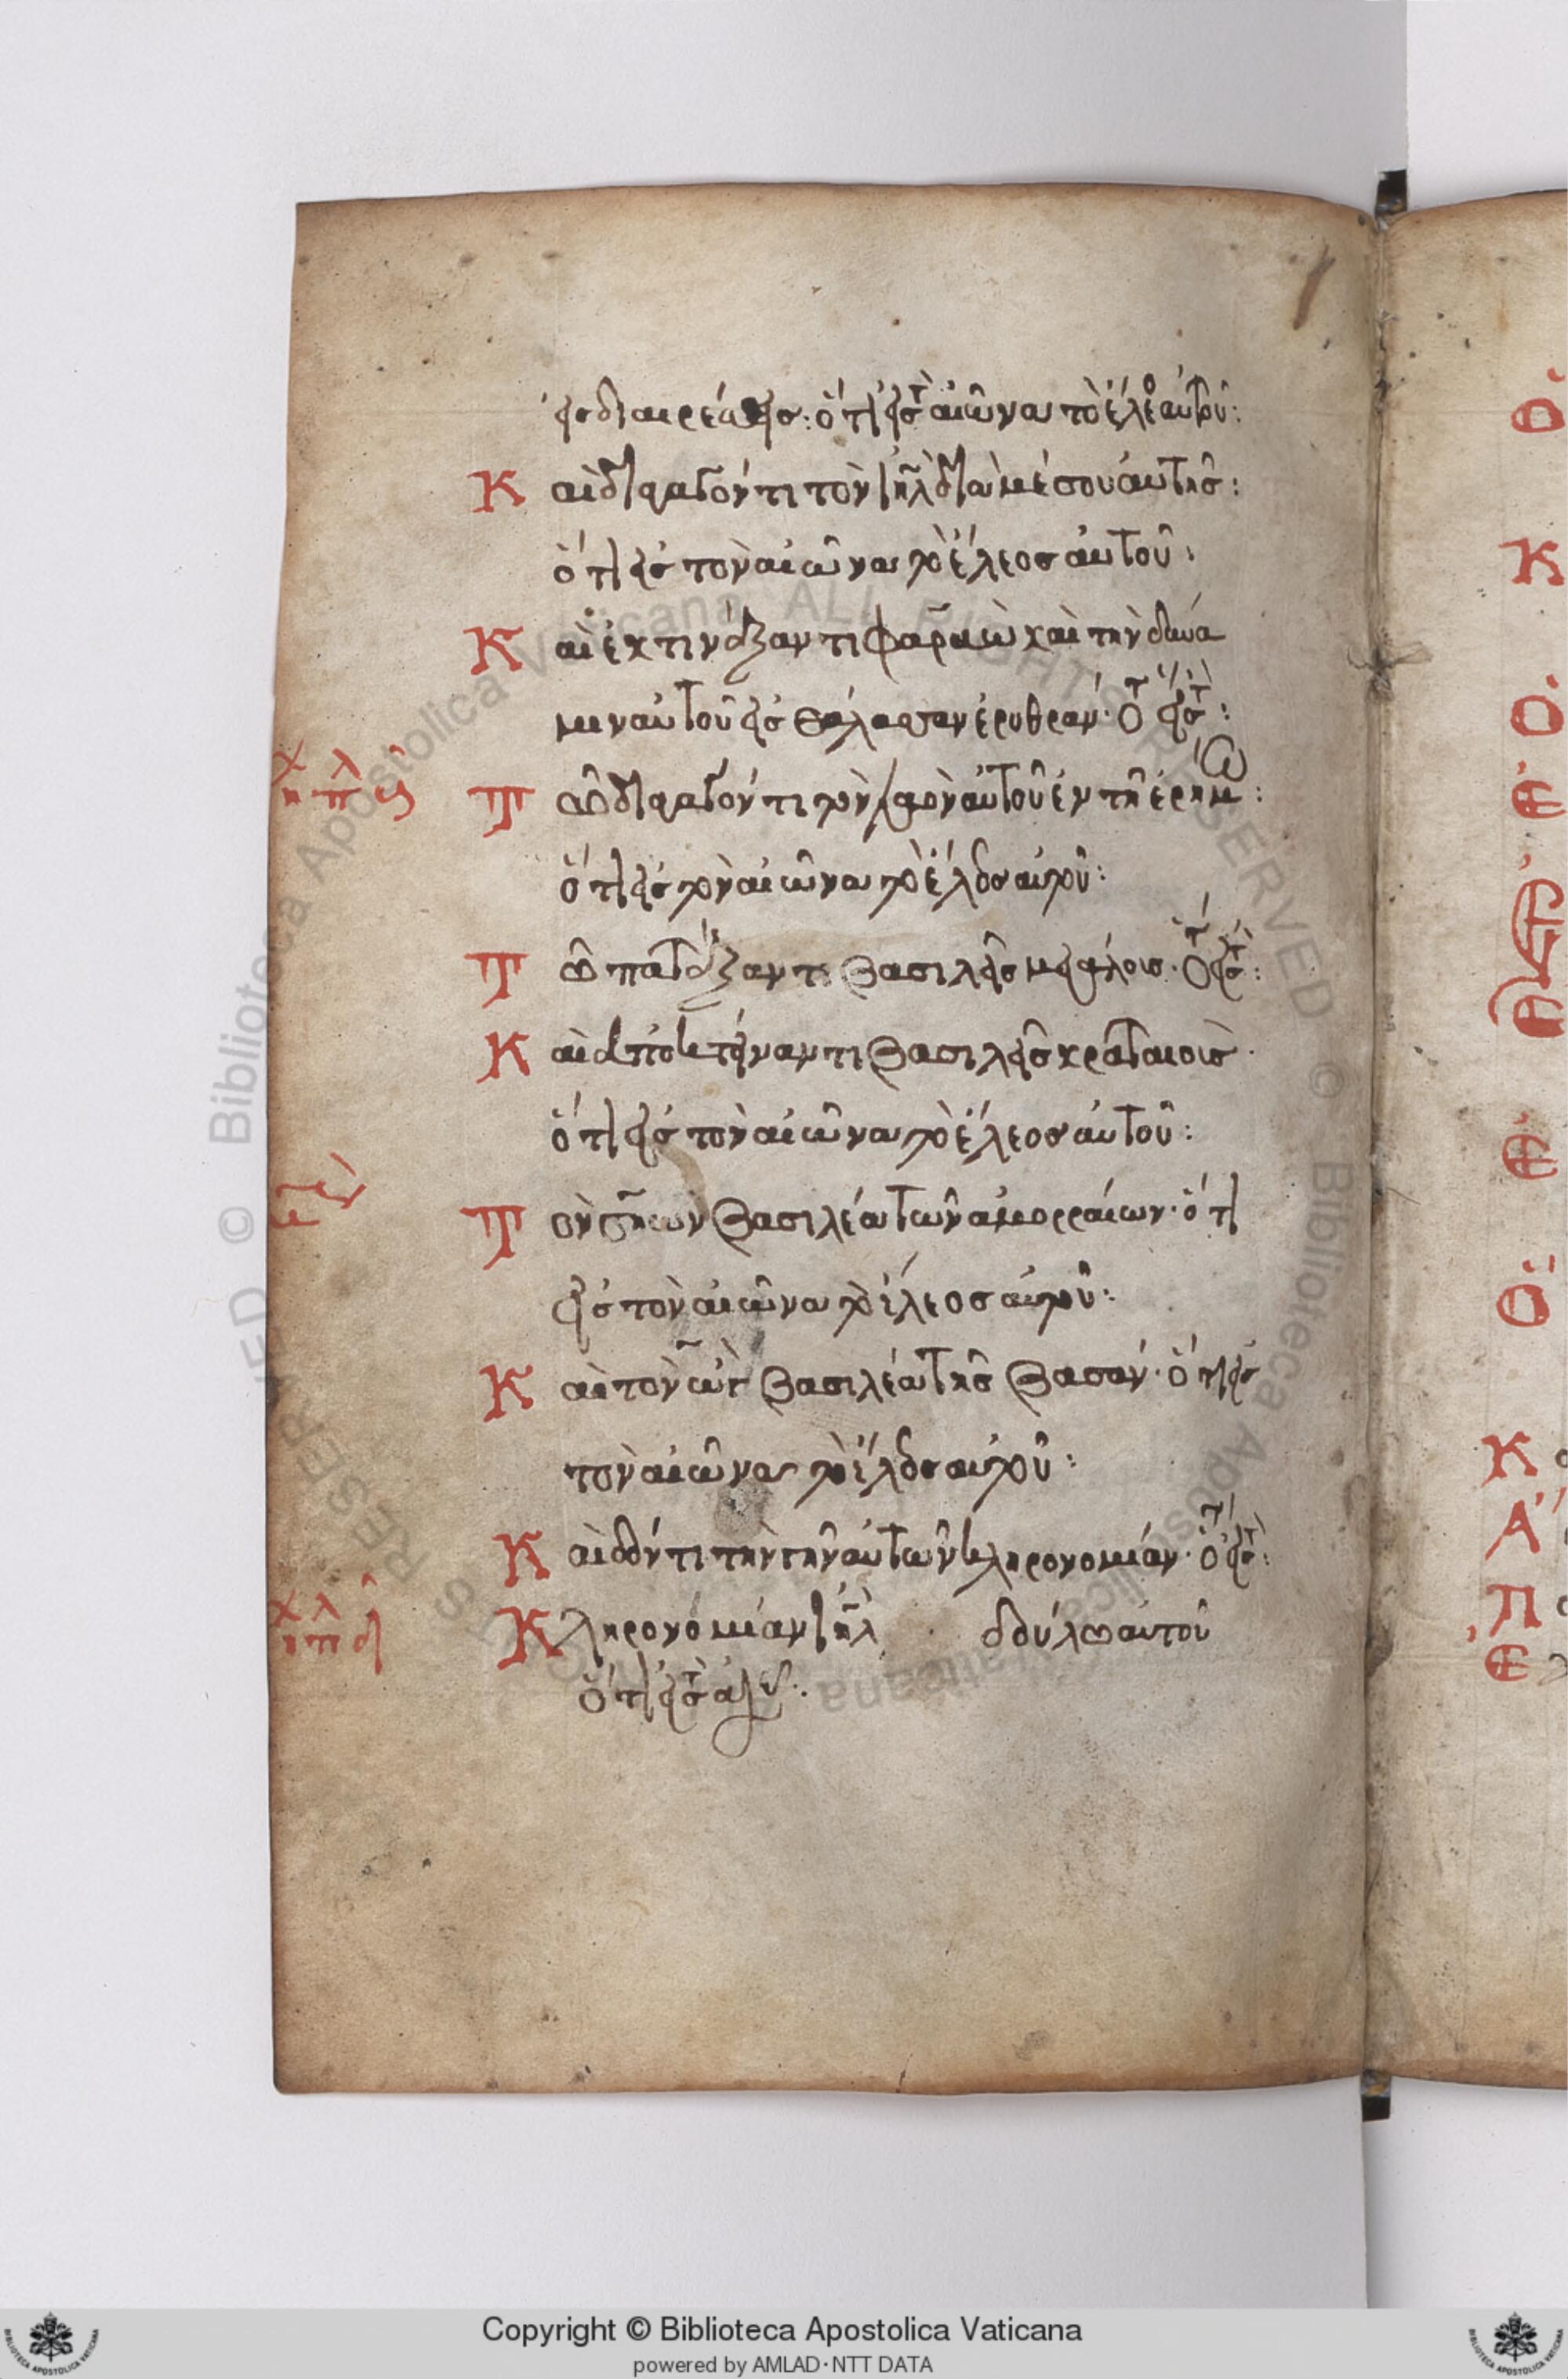 εἰς διαιρέσεις: ὅτι εἰς τ αἰῶνα τὸ ἔλεο αὐτοῦ:
Καὶ διαγαγόντι τὸν ἰηλ διὰ μέσου αὐτῆς:
ὅτι εἰς τὸν αἰῶνα τὸ ἔλεος αὐτοῦ:
Καὶ ἐκτινάξαντι φαραὼ καὶ τὴν δύνα
μιν αὐτοῦ εἰς θάλασσαν ἐρυθράν· ὅτ εἰς τ:
Τῶ διαγαγόντι τὸν λαὸν αὐτοῦ ἐν τῆ ἐρήμω:
ὅτι εἰς τὸν αἰῶνα τὸ ἔλεος αὐτοῦ:
Τῶ πατάξαντι βασιλεῖς μεγάλοις· ὅτ εἰς τ:
Καὶ ἀποκτείναντι βασιλεῖς κραταιοὶς·
ὅτι εἰς τὸν αἰῶνα τὸ ἔλεος αὐτοῦ:
Τὸν σηὼν βασιλέα τῶν ἀμορραίων· ὅτι
εἰς τὸν αἰῶνα τὸ ἔλεος αὐτοῦ:
Καὶ τὸν ὢγ βασιλέα τῆς βασάν· ὅτι εἰς
τὸν αἰῶνα τὸ ἔλεος αὐτοῦ:
Καὶ δόντι τὴν γῆν αὐτῶν κληρονομίαν· ὅτ εἰς τ:
Κληρονομίαν ἰηλ δούλω αὐτοῦ
ὅτι εἰς τ
Copyright © Biblioteca Apostolica Vaticana
powered by AMLAD·NTT DATA